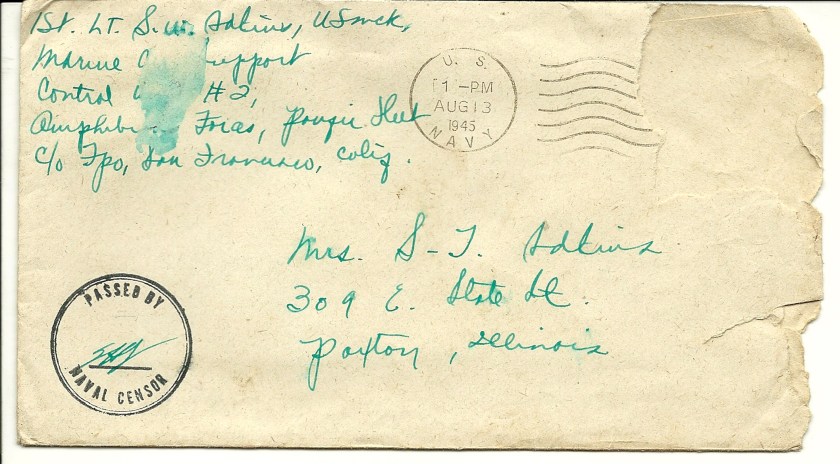 1st. Lt. S. W. Adkins, USMCR,
Marine Support
Control #2,
Forces, Pacific Fleet
c/o FPO, San Francisco, Calif.
U. S.
1 -PM
AUG 13
1945
NAVY
Mrs. S-T. Adkins
309 E. State St.
Paxton, Illinois
PASSED BY
NAVAL CENSOR